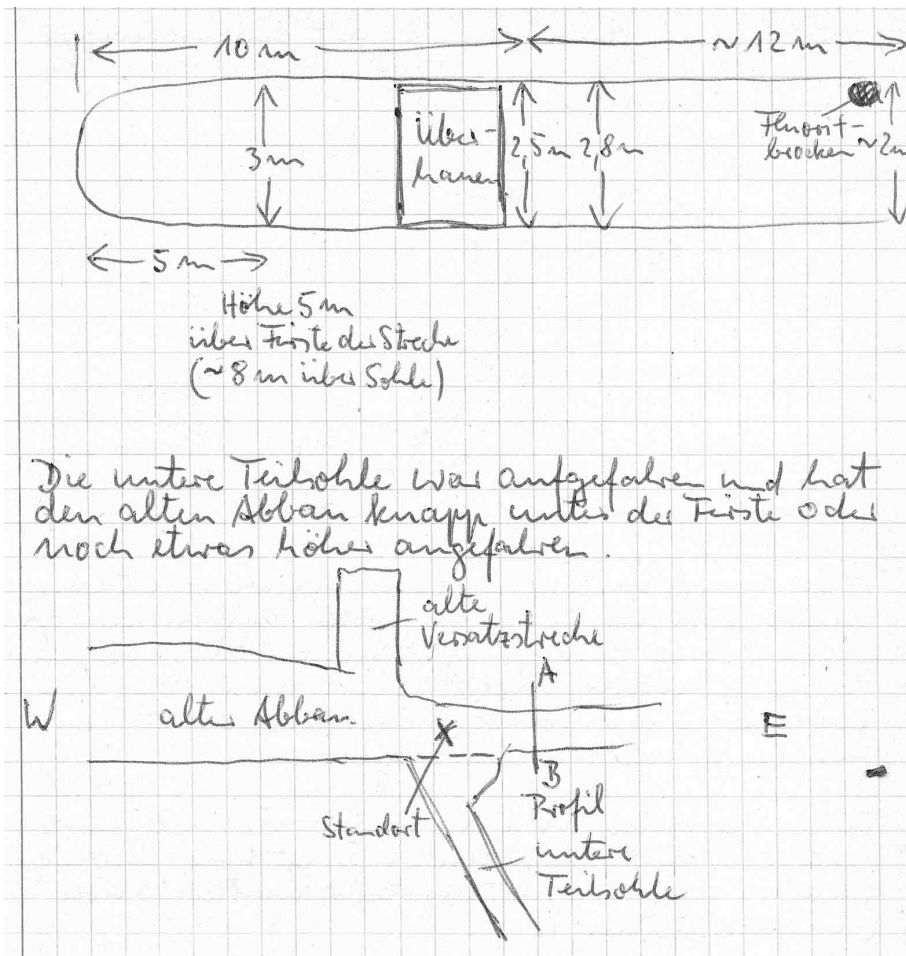 10 m
~ 12 m
3 m
Über-
hauen
2,5 m
2,8 m
Fluorit-
brocken
~2m
5 m
Höhe 5 m
über Firste der Strecke
(~ 8 m über Sohle)
Die untere Teilsohle war aufgefahren und hat
den alten Abbau knapp unter der Firste oder
noch etwas höher angefahren.
alte
Versatzstrecke
A
W
alter Abbau
E
B
Standort
Profil
untere
Teilsohle